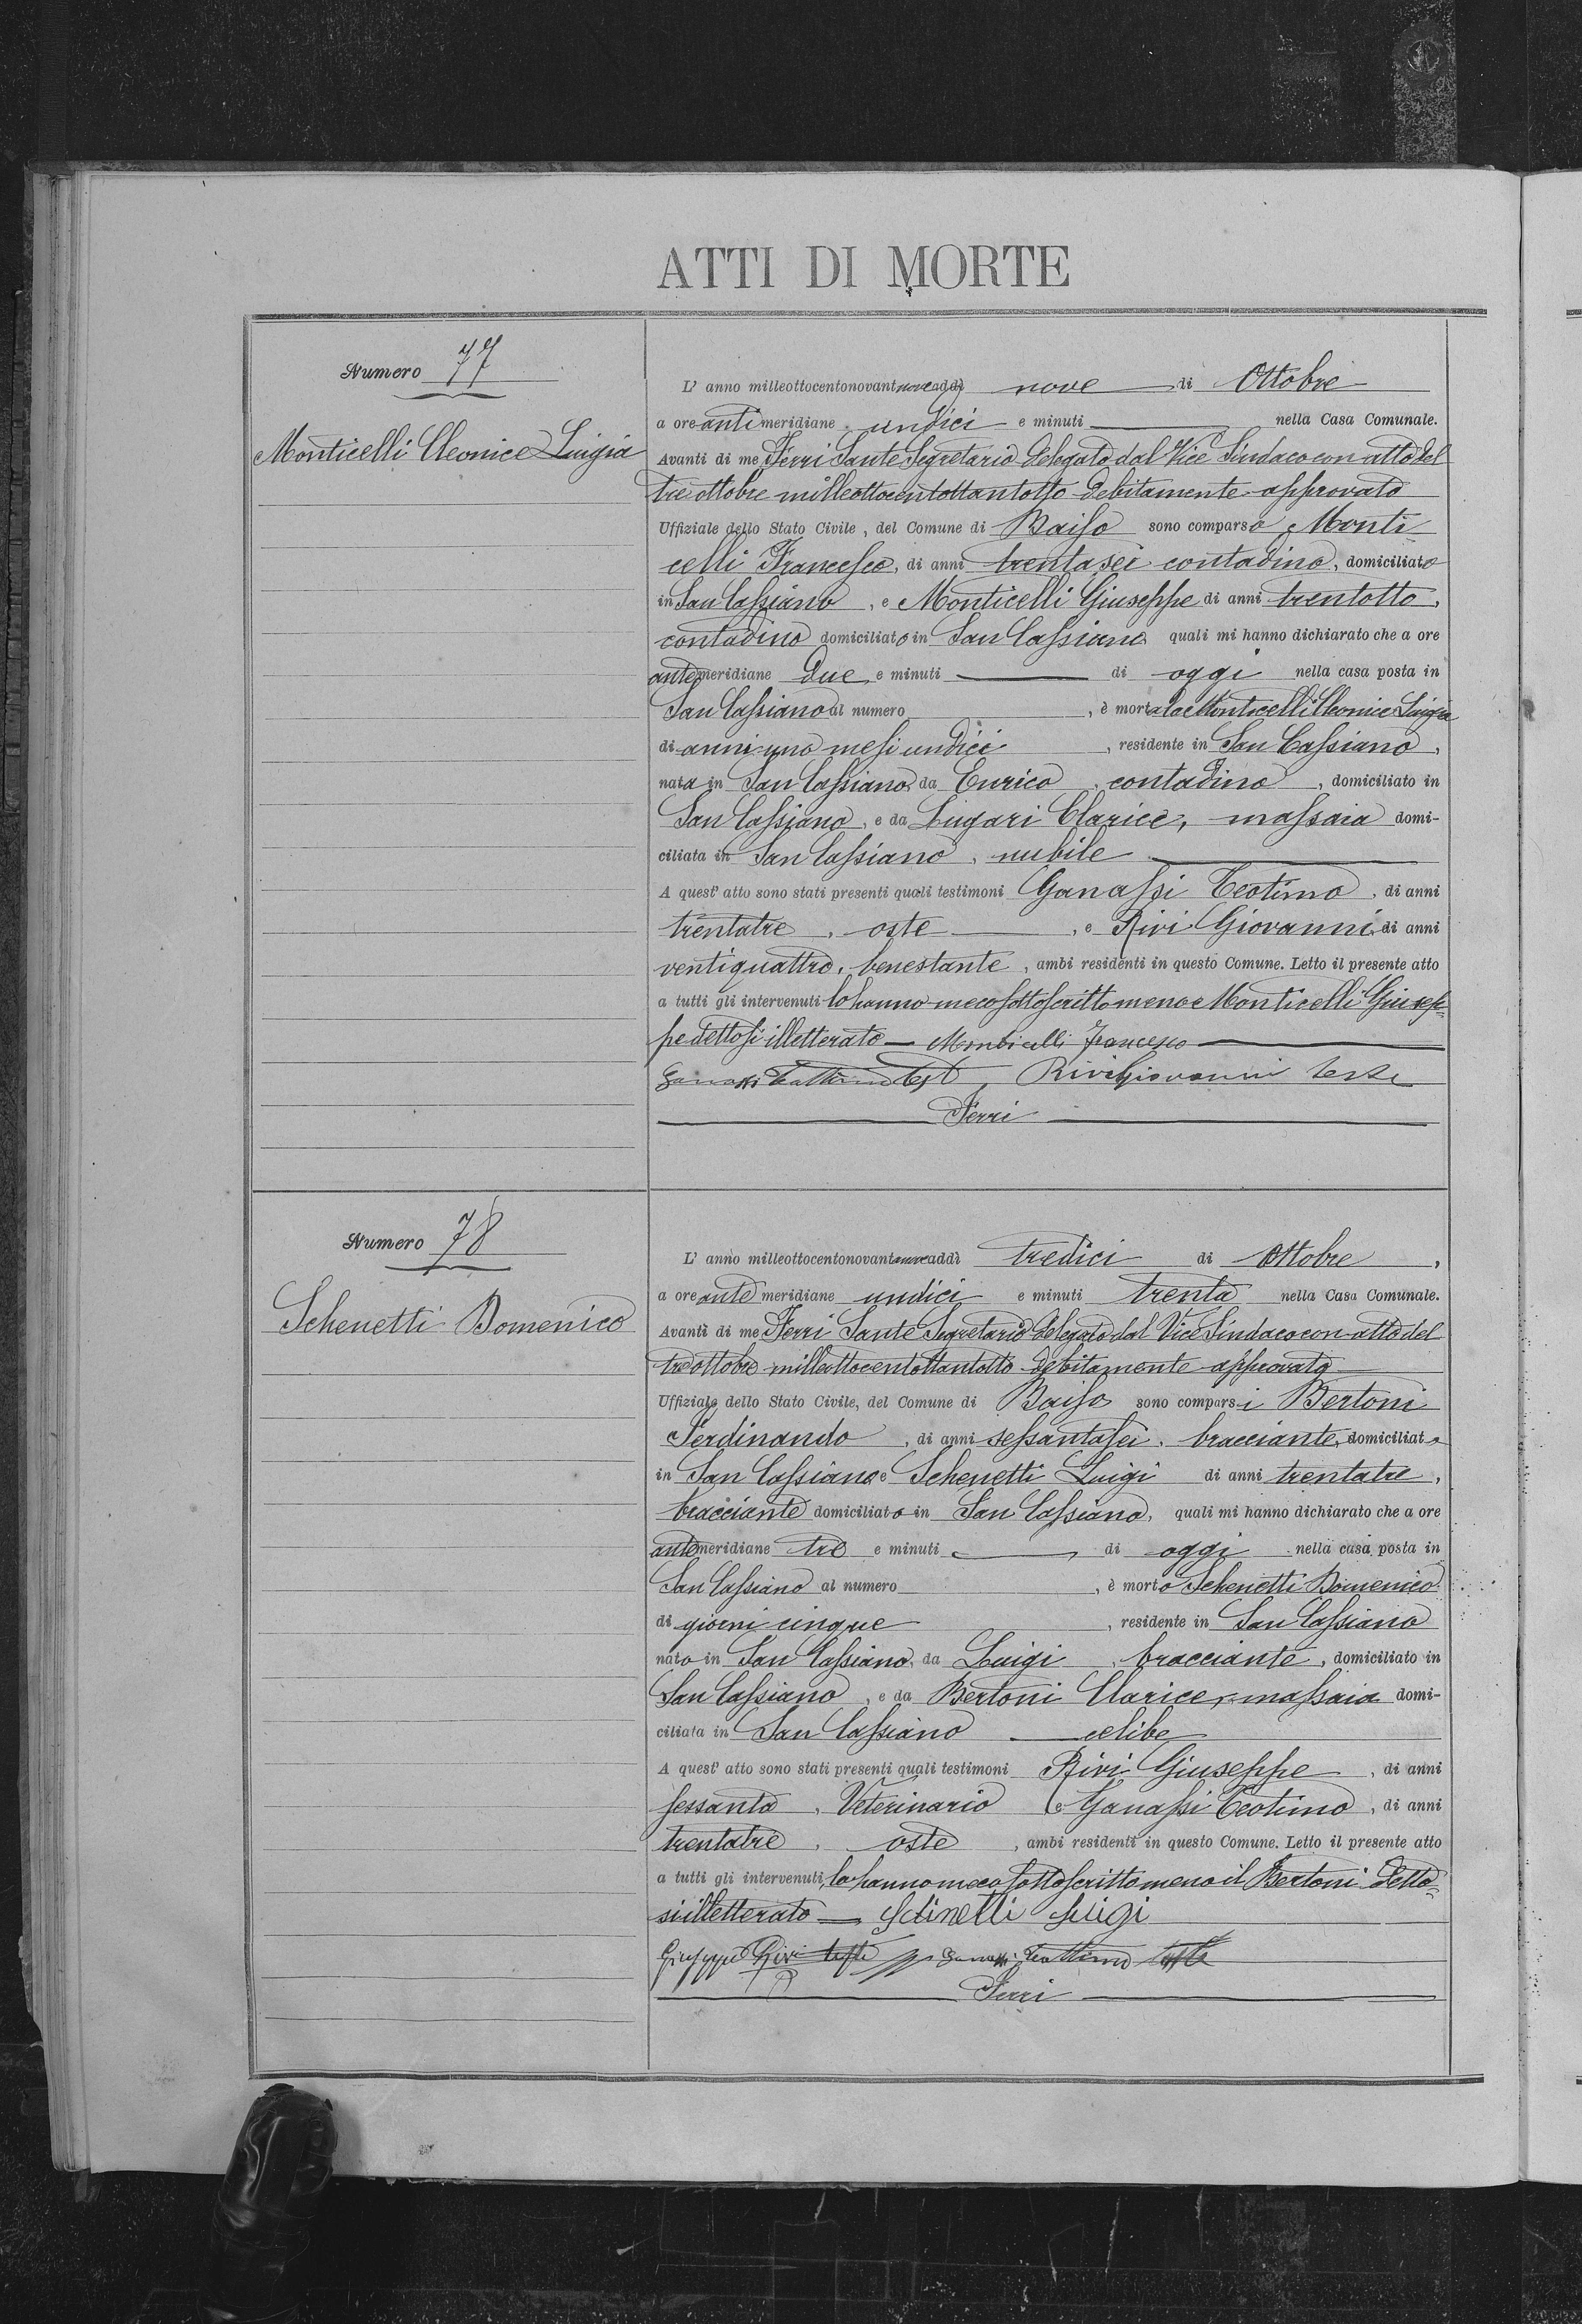 ATTI DI MORTE
Numero 77
Monticelli Cleonice Luigia
L' anno milleottocentonovantnove addì nove di Ottobre
a ore anti meridiane undici e minuti nella Casa Comunale.
Avanti di me Ferri Sante Segretario delegato dal Vice Sindaco con atto del
tre ottobre milleottocentottantotto debitamente approvato
Uffiziale dello Stato Civile, del Comune di Baiso sono comparso Monti
celli Francesco, di anni trentasei contadino, domiciliato
in San Cassiano, e Monticelli Giuseppe di anni trentotto,
contadino domiciliato in San Cassiano quali mi hanno dichiarato che a ore
antemeridiane due e minuti di oggi nella casa posta in
San Cassiano al numero , è morta la Monticelli Cleonice Luigia
di anni uno mesi undici , residente in San Cassiano,
nata in San Cassiano, da Enrico, contadino, domiciliato in
San Cassiano, e da Lugari Clarice, massaia domi-
ciliata in San Cassiano, nubile
A quest' atto sono stati presenti quali testimoni Ganassi Teotimo, di anni
trentatre, oste , e Rivi Giovanni, di anni
ventiquattro, benestante, ambi residenti in questo Comune. Letto il presente atto
a tutti gli intervenuti lo hanno meco sottoscritto meno e Monticelli Giusep-
pe dettosi illetterato — Monticelli Francesco
Ganassi Teottimo Test Rivi Giovanni teste
Ferri
Numero 78
Schenetti Domenico
L' anno milleottocentonovantanove addì tredici di Ottobre,
a ore ante meridiane undici e minuti trenta nella Casa Comunale.
Avanti di me Ferri Sante Segretario delegato dal Vice Sindaco con atto del
tre ottobre milleottocentottantotto debitamente approvato
Uffiziale dello Stato Civile, del Comune di Baiso sono comparsi Bertoni
Ferdinando, di anni sessantasei, bracciante, domiciliato
in San Cassiano e Schenetti Luigi di anni trentatre,
bracciante domiciliato in San Cassiano, quali mi hanno dichiarato che a ore
antemeridiane tre e minuti di oggi nella casa posta in
San Cassiano al numero , è morto Schenetti Domenico
di giorni cinque , residente in San Cassiano
nato in San Cassiano, da Luigi, bracciante, domiciliato in
San Cassiano, e da Bertoni Clarice, massaia domi-
ciliata in San Cassiano — celibe
A quest' atto sono stati presenti quali testimoni Rivi Giuseppe, di anni
sessanta, Veterinario e Ganassi Teotimo, di anni
trentatre, oste, ambi residenti in questo Comune. Letto il presente atto
a tutti gli intervenuti, lo hanno meco sottoscritto meno il Bertoni detto-
si illetterato — Schinetti Luigi
Giuseppe Rivi teste Ganassi Teottimo teste
Ferri